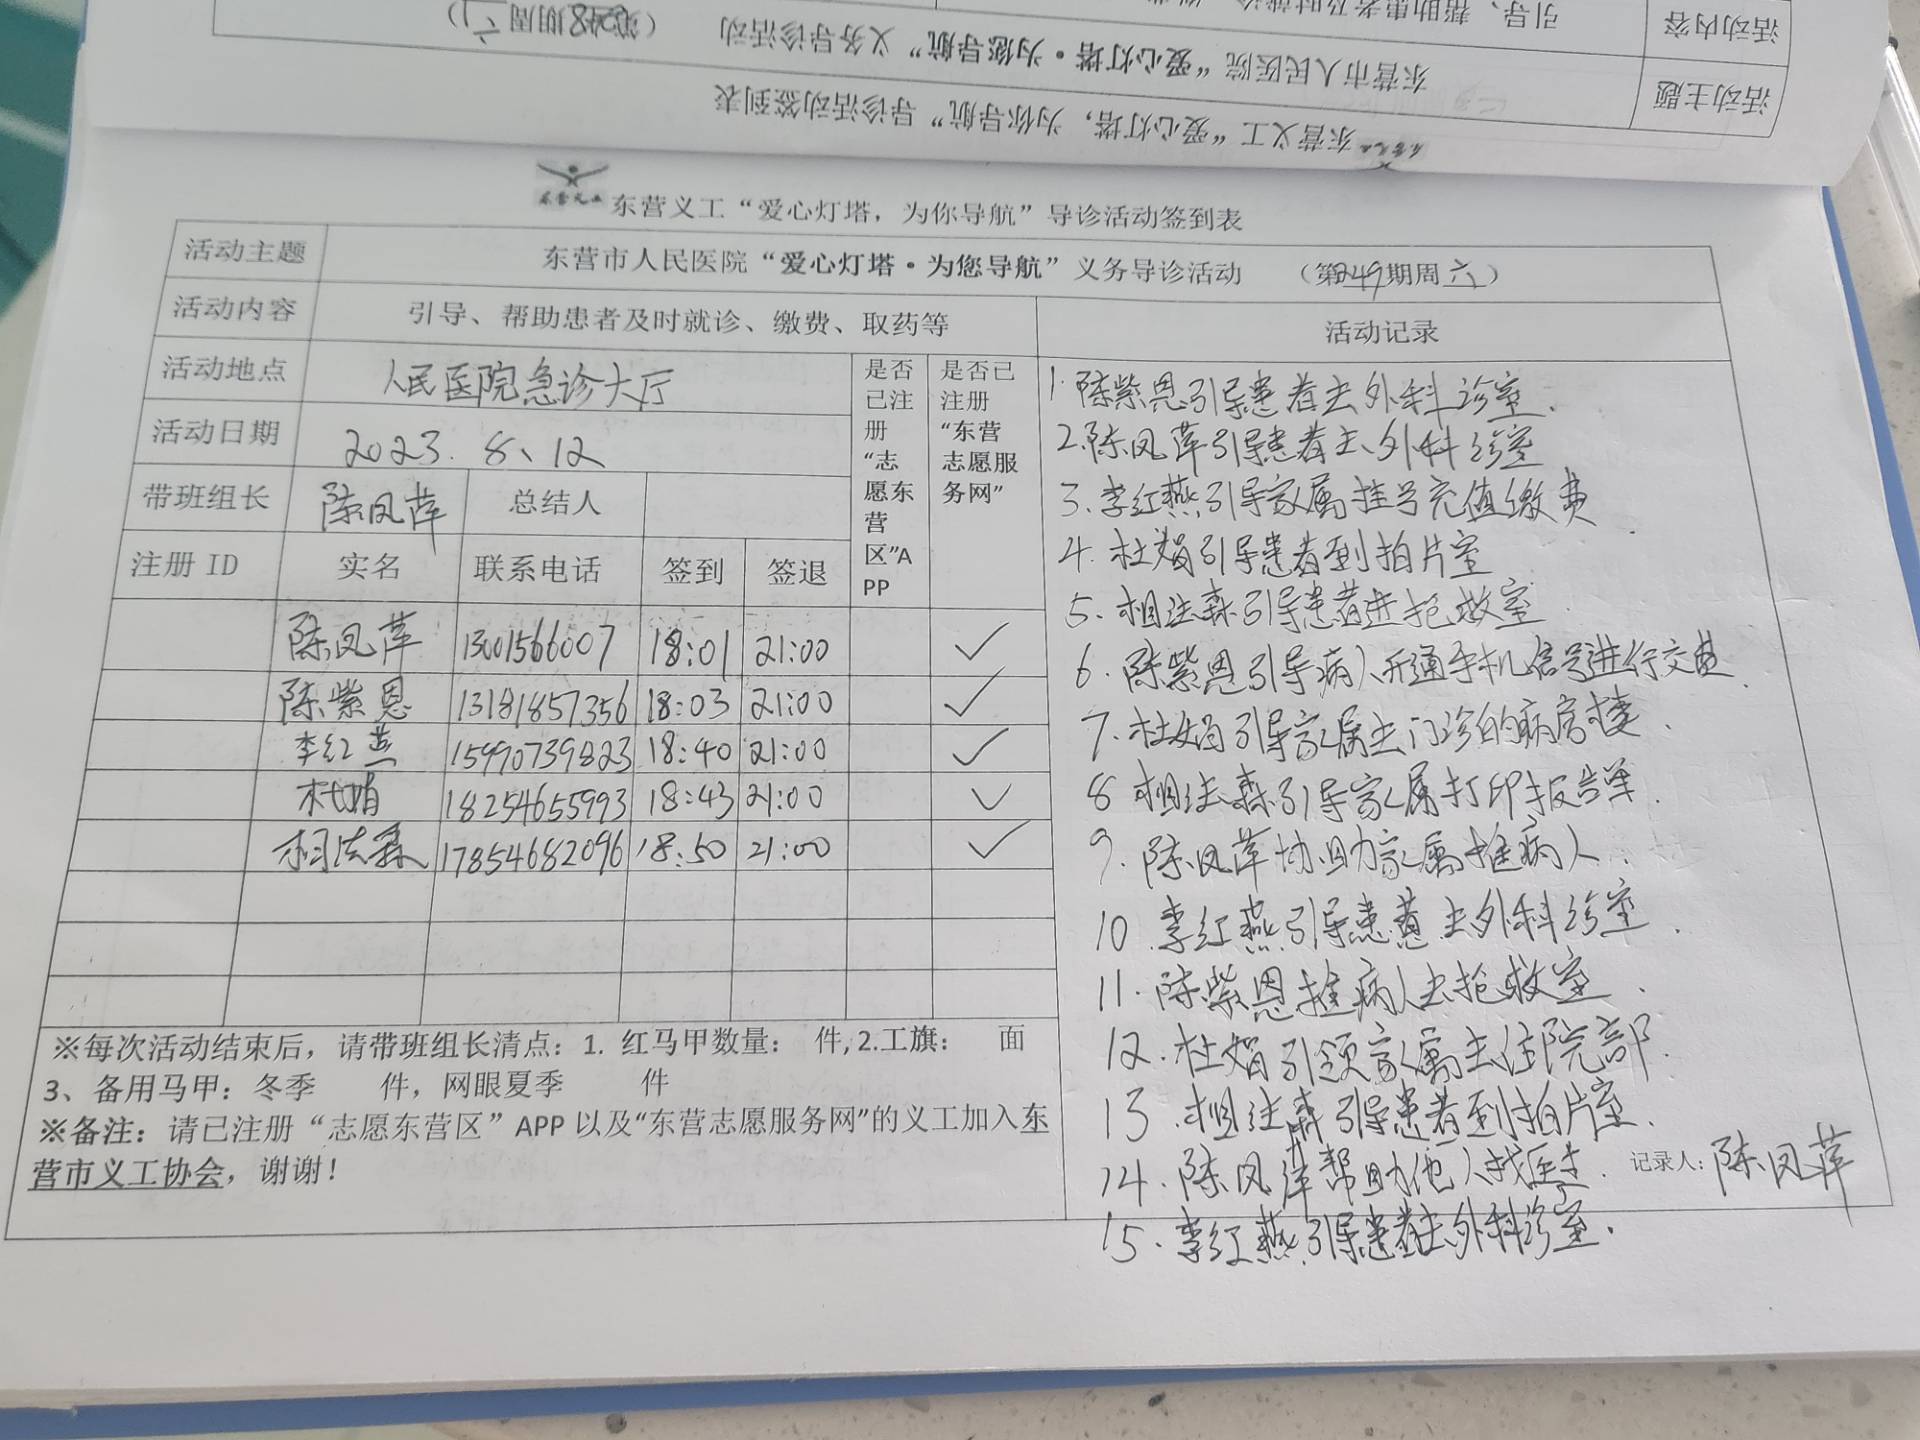 活动内容
引导、帮助患者及时就诊
活动主题
东营市人民医院“爱心灯塔·为您导航”义务导诊活动 （第248期周六）
东营义工“爱心灯塔，为你导航”导诊活动签到表
东营义工
东营义工“爱心灯塔，为你导航”导诊活动签到表
活动主题 东营市人民医院“爱心灯塔·为您导航”义务导诊活动 （第249期周六）
活动内容 引导、帮助患者及时就诊、缴费、取药等 活动记录
活动地点 人民医院急诊大厅
活动日期 2023.8、12
带班组长 陈凤萍 总结人
是否
已注
册
“志
愿东
营
区”A
PP
是否已
注册
“东营
志愿服
务网”
注册 ID 实名 联系电话 签到 签退
陈凤萍 13001566007 18:01 21:00 ✓
陈紫恩 13181857356 18:03 21:00 ✓
李红燕 15990739823 18:40 21:00 ✓
杜娟 18254655993 18:43 21:00 ✓
相法森 17854682096 18:50 21:00 ✓
※每次活动结束后，请带班组长清点：1. 红马甲数量： 件, 2.工旗： 面
3、备用马甲：冬季 件，网眼夏季 件
※备注：请已注册“志愿东营区”APP 以及“东营志愿服务网”的义工加入东
营市义工协会，谢谢！
1.陈紫恩引导患者去外科诊室.
2.陈凤萍引导患者去外科诊室
3.李红燕引导家属挂号充值缴费.
4.杜娟引导患者到拍片室
5.相法森引导患者进抢救室
6.陈紫恩引导病人开通手机信号进行交费.
7.杜娟引导家属去门诊的病房楼.
8 相法森引导家属打印报告单.
9.陈凤萍协助家属推病人.
10.李红燕引导患者去外科诊室.
11.陈紫恩推病人去抢救室.
12.杜娟引领家属去住院部.
13.相法森引导患者到拍片室.
14.陈凤萍帮助他人找医生.
15.李红燕引导患者去外科诊室.
记录人：陈凤萍